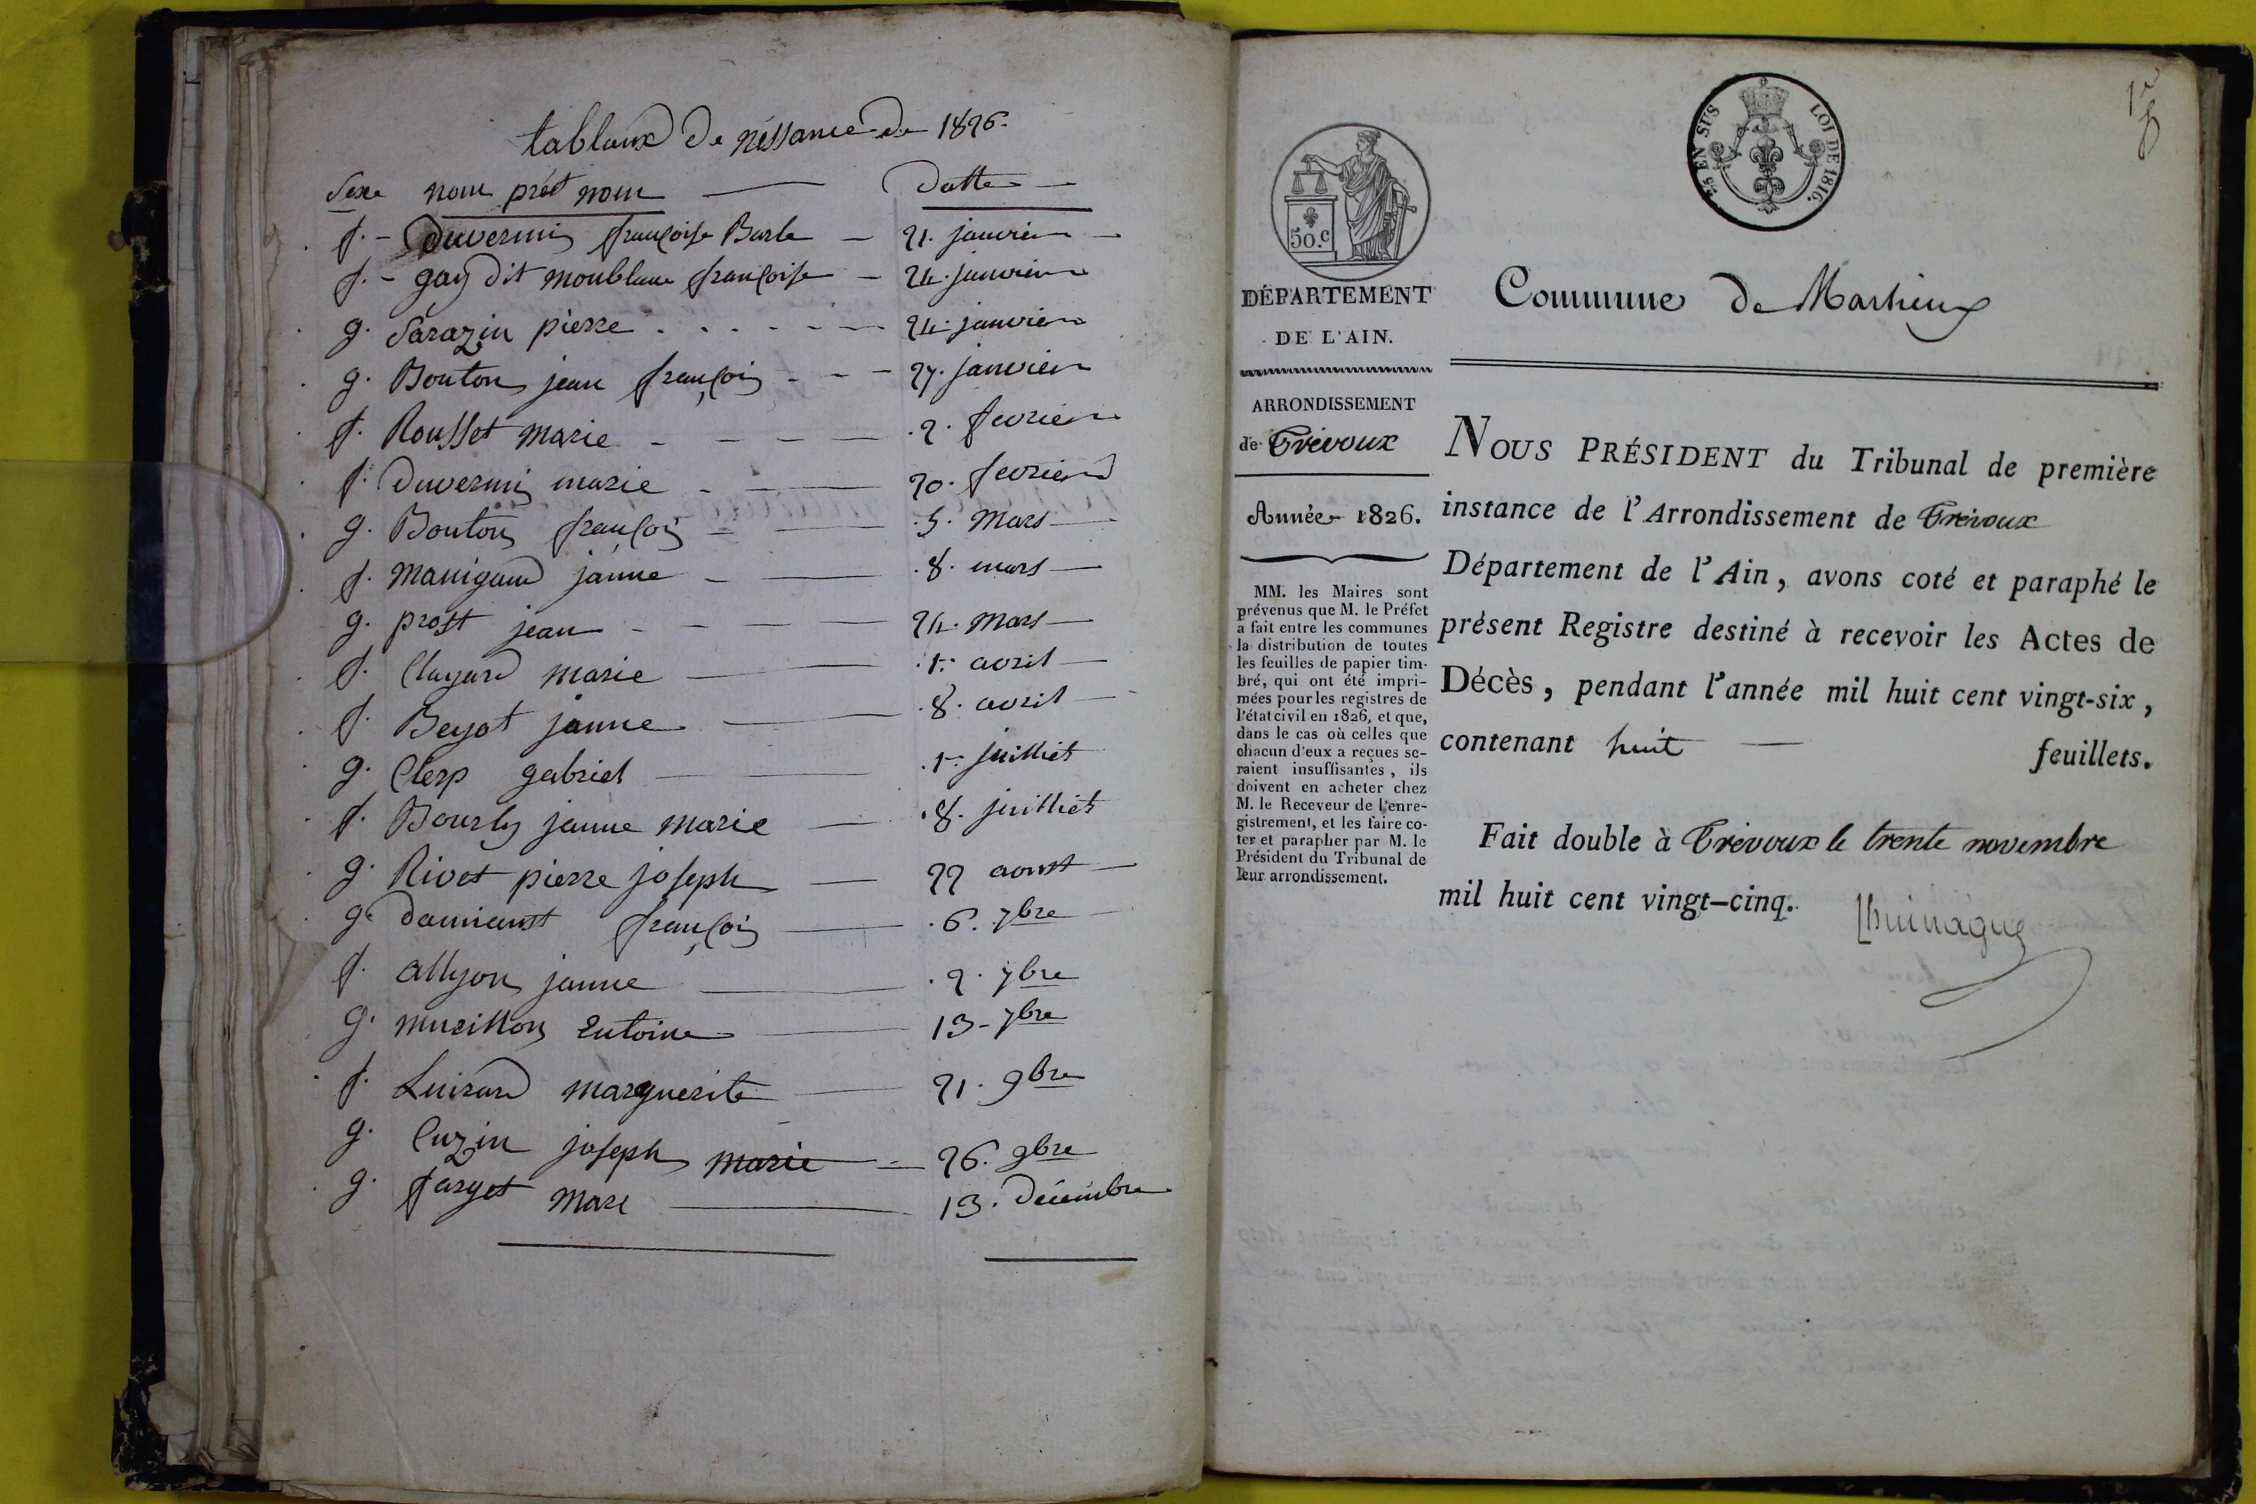 tablaux de néssance de 1826.
Sexe nom prét nom — Datte —
f. - Duvernis françoise Barbe — 21. janvier —
f. - gay dit monblanc françoise — 24. janvier
g. Sarazin pierre . . - - - — 24. janvier
g. Bouton jean françois - - - 27. janvier
f. Rousset marie - - - — .2. fevrier
f. Duvernis marie - — — 20. fevrier
g. Bouton françois - — .5. Mars —
f. manigand janne - — .8. mars —
g. prost jean - - - — — 24. Mars —
f. Clayard marie — — .1er avril —
f. Beyot janne — — .8. avril —
g. Clerp gabriel — — .1er juilliet
f. Bourly janne marie — .8. juilliet
g. Rivet pierre joseph — 22 aoust —
g. françois — .6. 7bre —
f. allyon janne — .9. 7bre
g. murillon Entoine — 13 - 7bre
f. Luirard marguerite — 21. 9bre
g. Cuzin joseph marie — 26. 9bre
g. farget Marc — 13. Décembre
1er
25 EN SUS LOI DE 1816.
50.c
DÉPARTEMENT
DE L'AIN.
ARRONDISSEMENT
de Trévoux
Année 1826.
MM. les Maires sont
prévenus que M. le Préfet
a fait entre les communes
la distribution de toutes
les feuilles de papier tim-
bré, qui ont été impri-
mées pour les registres de
l'état civil en 1826, et que,
dans le cas où celles que
chacun d'eux a reçues se-
raient insuffisantes, ils
doivent en acheter chez
M. le Receveur de l'enre-
gistrement, et les faire co-
ter et parapher par M. le
Président du Tribunal de
leur arrondissement.
Commune de Marlieux
NOUS PRÉSIDENT du Tribunal de première
instance de l'Arrondissement de Trévoux
Département de l'Ain, avons coté et paraphé le
présent Registre destiné à recevoir les Actes de
Décès, pendant l'année mil huit cent vingt-six,
contenant huit — feuillets.
Fait double à Trévoux le trente novembre
mil huit cent vingt-cinq.